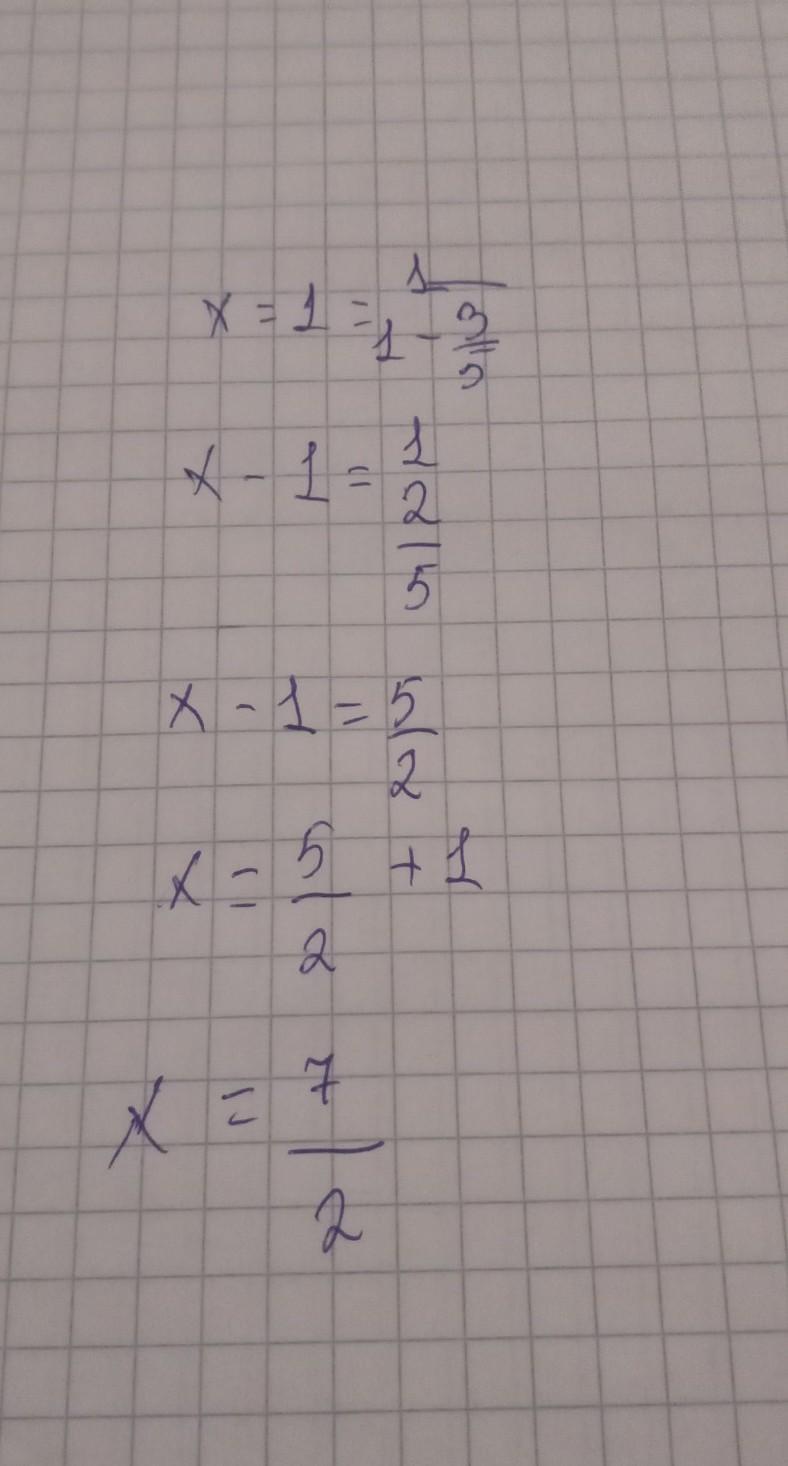 x = 1 = 1/(1 - 3/5)
x - 1 = 1/(2/5)
x - 1 = 5/2
x = 5/2 + 1
x = 7/2